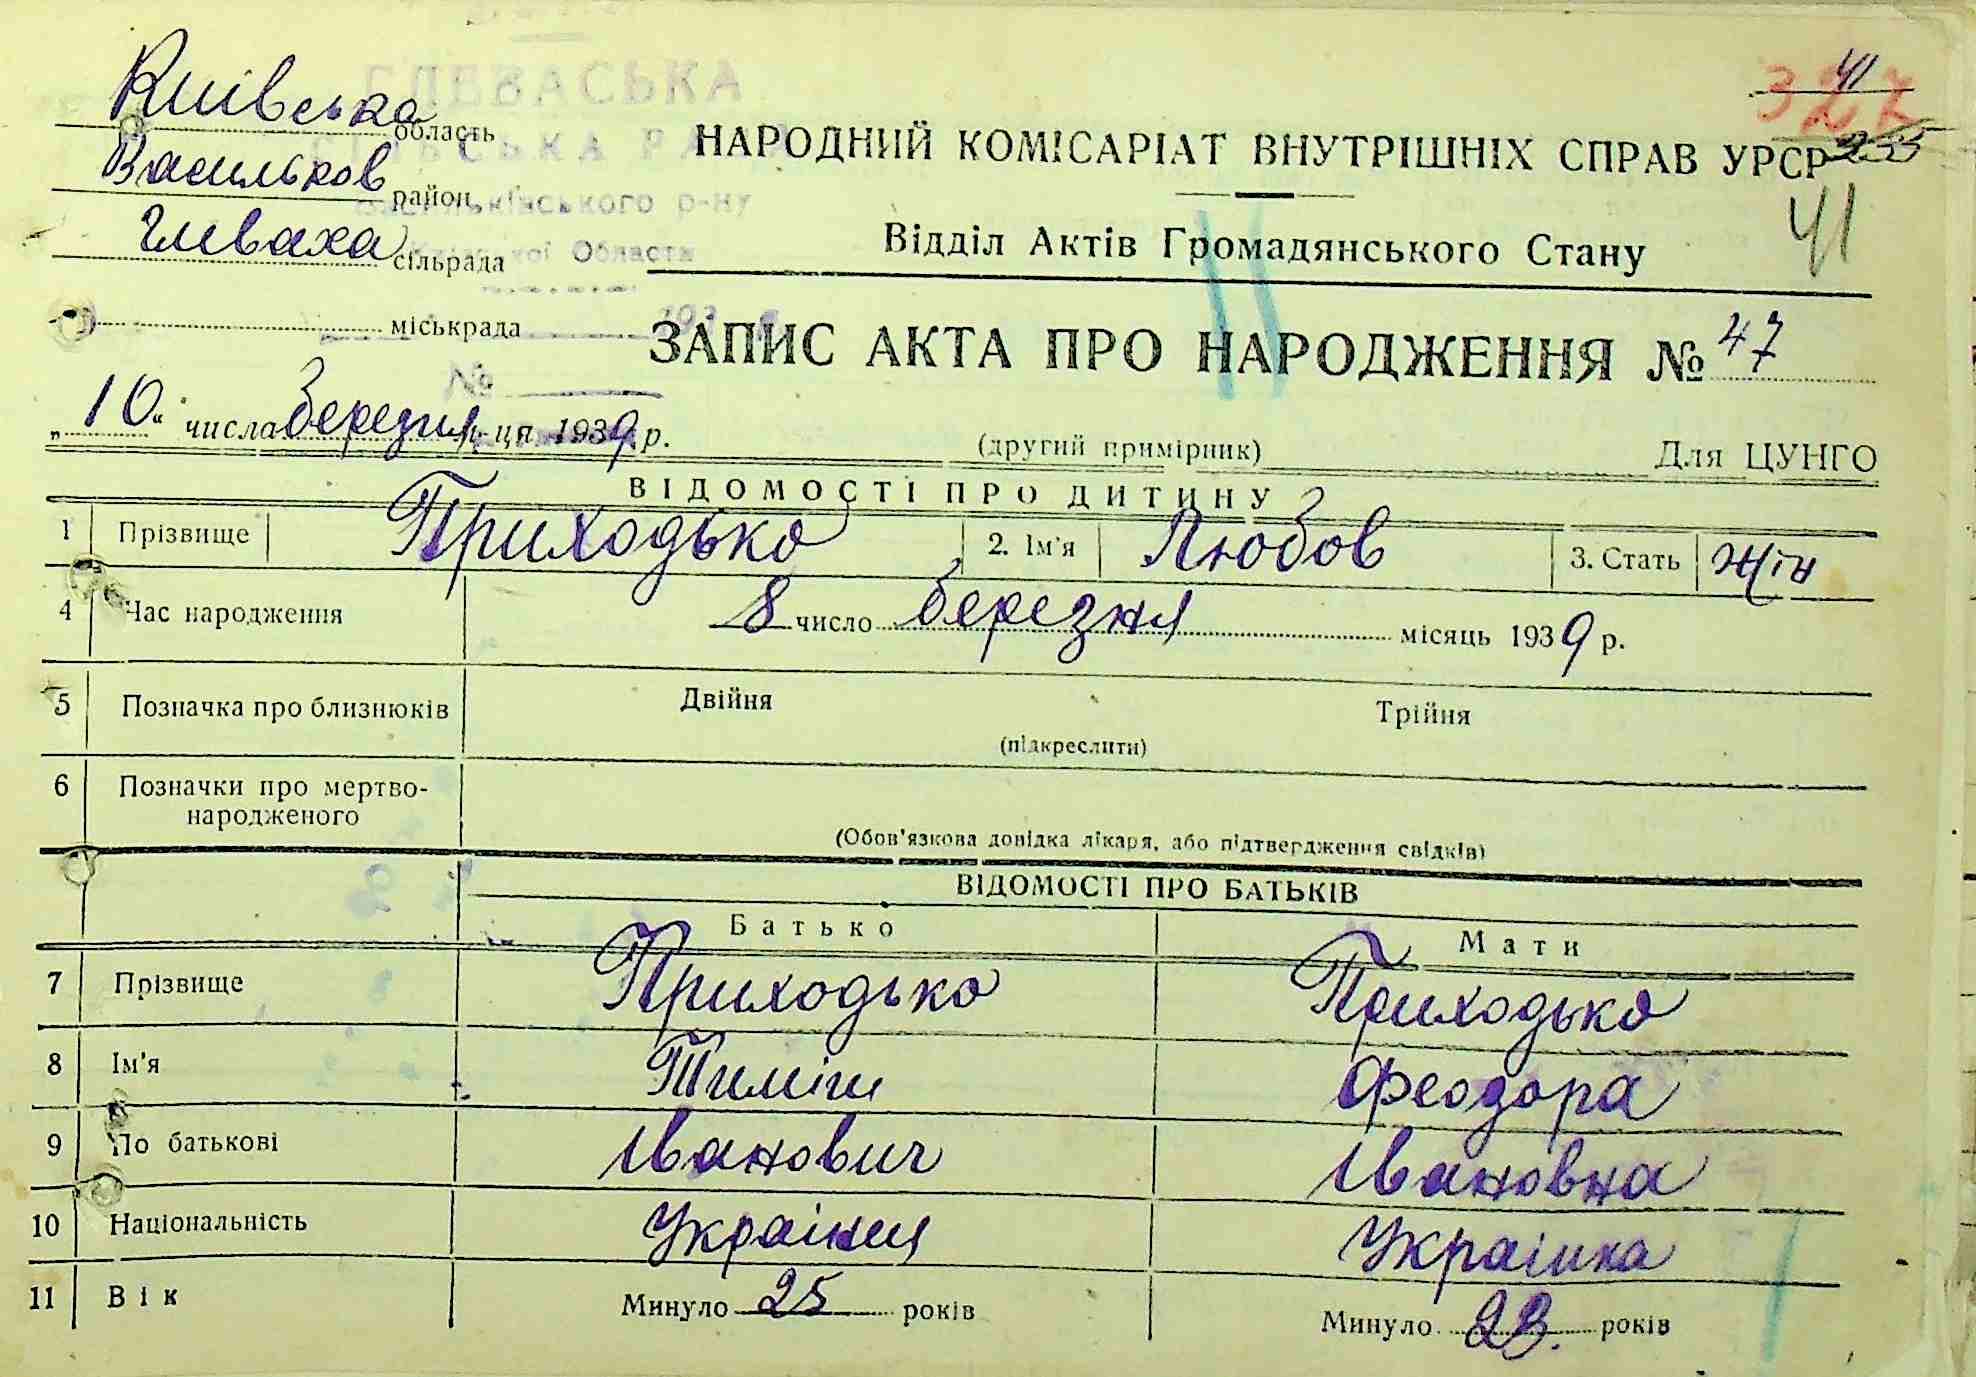 41
327
Київська область
ГЛЕВАСЬКА
СІЛЬСЬКА РАДА
НАРОДНИЙ КОМІСАРІАТ ВНУТРІШНІХ СПРАВ УРСР
Васильков район
Васильківського р-ну
41
Глеваха сільрада
Київської Области
Відділ Актів Громадянського Стану
міськрада
193
ЗАПИС АКТА ПРО НАРОДЖЕННЯ № 47
№
„10“ числа березня м-ця 1939 р.
(другий примірник)
Для ЦУНГО
ВІДОМОСТІ ПРО ДИТИНУ
1 Прізвище Приходько 2. Ім'я Любов 3. Стать жін
4 Час народження 8 число березня місяць 1939 р.
5 Позначка про близнюків Двійня Трійня
(підкреслити)
6 Позначки про мертво-
народженого
(Обов'язкова довідка лікаря, або підтвердження свідків)
ВІДОМОСТІ ПРО БАТЬКІВ
Батько Мати
7 Прізвище Приходько Приходько
8 Ім'я Феодора
9 По батькові Іванович Івановна
10 Національність Українец Українка
11 Вік Минуло 25 років Минуло 23 років